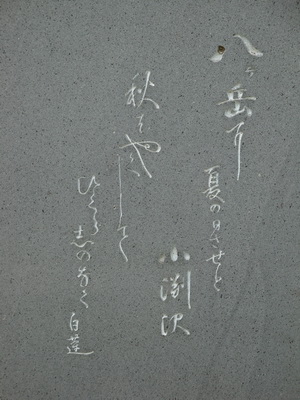 八ヶ岳に
夏の日させと
小渕沢
秋をやとして
ひくら志のなく 白蓮